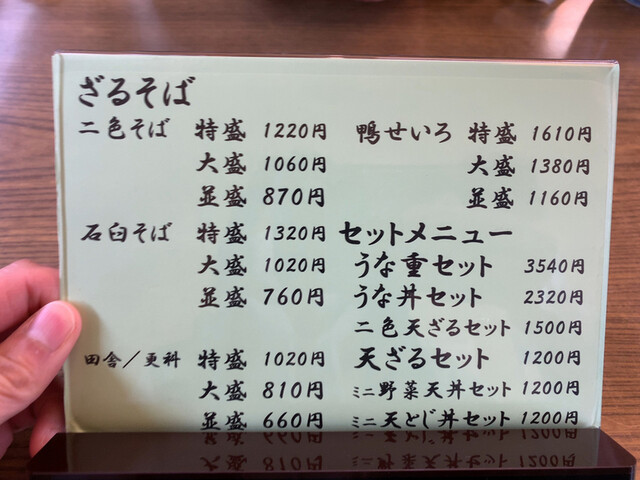 ざるそば
二色そば 特盛 1220円
大盛 1060円
並盛 870円
石臼そば 特盛 1320円
大盛 1020円
並盛 760円
田舎／更科 特盛 1020円
大盛 810円
並盛 660円
鴨せいろ 特盛 1610円
大盛 1380円
並盛 1160円
セットメニュー
うな重セット 3540円
うな丼セット 2320円
二色天ざるセット 1500円
天ざるセット 1200円
ミニ野菜天丼セット 1200円
ミニ天とじ丼セット 1200円